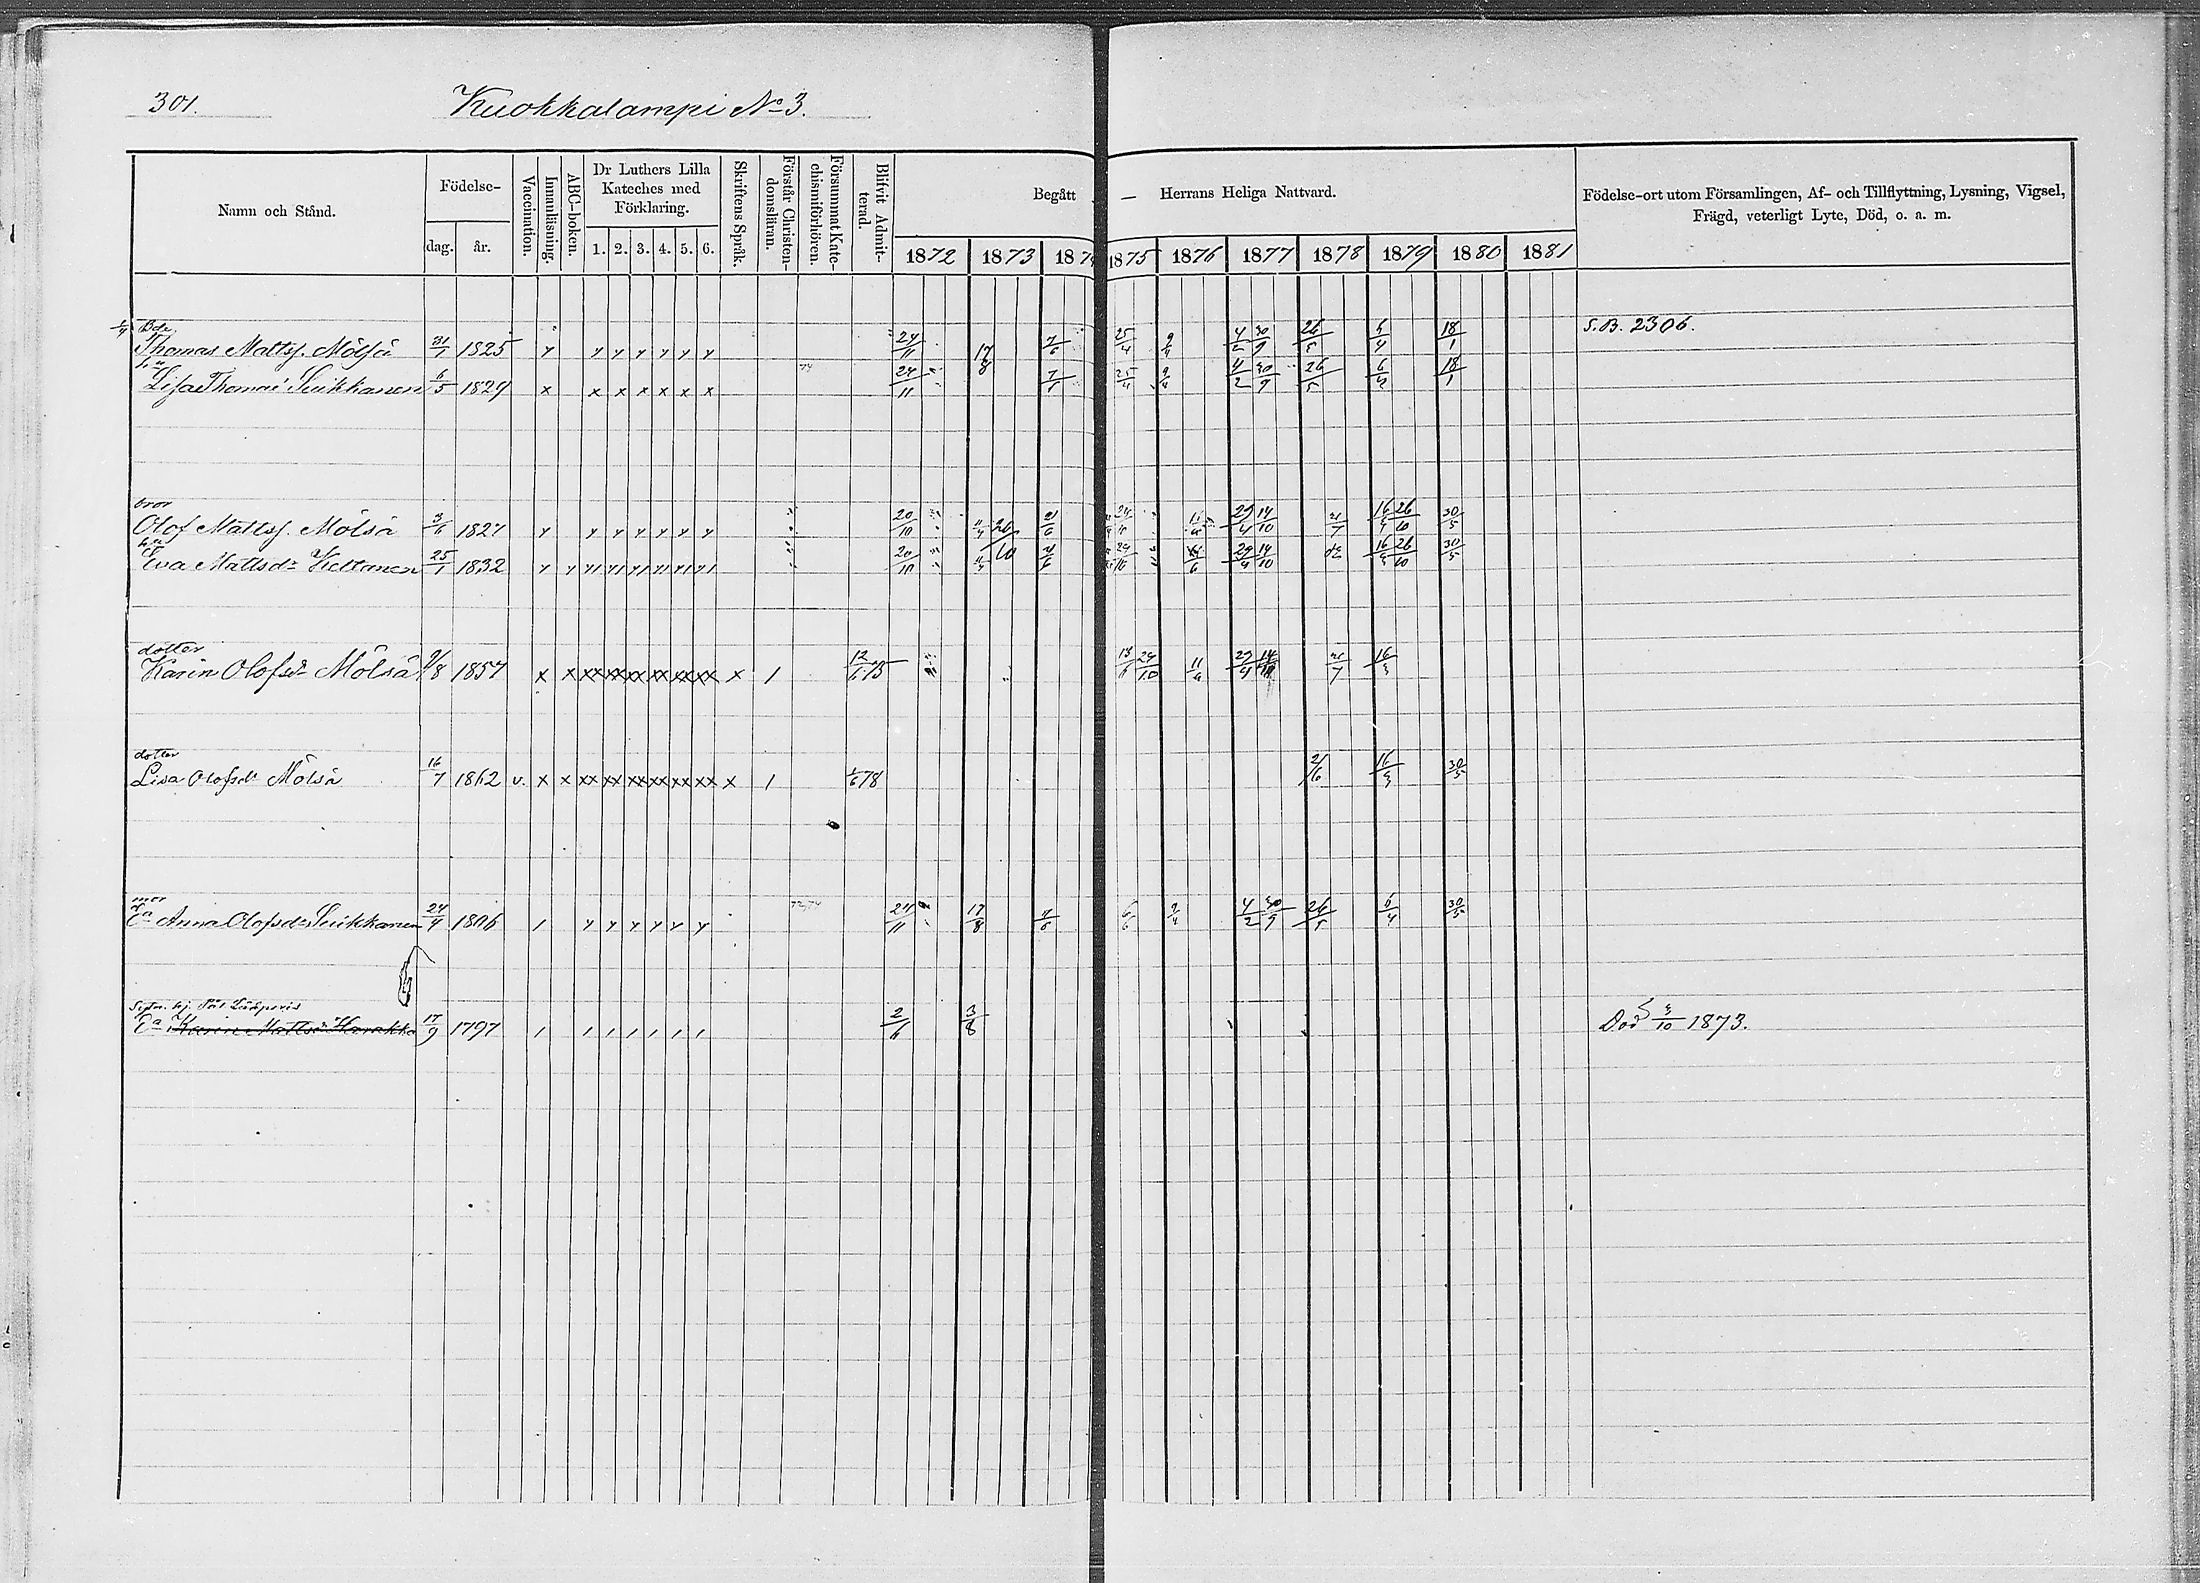 301.
Kuokkalampi No 3.
Namn och Stånd.
Födelse-
dag.
år.
Vaccination.
Innanläsning.
ABC-boken.
Dr Luthers Lilla
Kateches med
Förklaring.
1. 2. 3. 4. 5. 6.
Skriftens Språk.
Förstår Christen-
domsläran.
Försummat Kate-
chismiförhören.
Blifvit Admit-
terad.
Begått — Herrans Heliga Nattvard.
1872 1873 187 1875 1876 1877 1878 1879 1880 1881
Födelse-ort utom Församlingen, Af- och Tillflyttning, Lysning, Vigsel,
Frägd, veterligt Lyte, Död, o. a. m.
Bde.
Thomas Mattsf. Mölsä 31/7 1825 24/11 17/8 7/6 25/4 9/4 4/2 30/9 26/5 6/4 18/1 S.B. 2306.
hu
Lisa Thomasd. Suikkanen 6/5 1829 24/11 25/4 9/4 4/2 30/9 26/5 6/4 18/1
bror
Olof Mattsf. Mölsä 3/6 1827 20/10 26/10 21/6 29/4 14/10 21/7 16/3 26/10 30/5
hu
Eva Mattsdr Kettanen 25/1 1832 20/10 29/4 14/10 16/3 26/10 30/5
dotter
Karin Olofsdr Mölsä 9/8 1857 x x xx xx xx xx xx xx x 1 12/6 75 13/6 24/10 29/4 21/7 16/3
dotter
Lisa Olofsdr Mölsä 16/7 1862 v. x x xx xx xx xx xx xx x 1 78 2/6 16/3 30/5
mor
Ea Anna Olofsdr Suikkanen 24/9 1806 24/11 17/8 7/6 6/6 9/4 4/2 30/9 26/5 6/4 30/5
Ea Karin Mattsdr Harakka 17/9 1797 3/8 Död 3/10 1873.